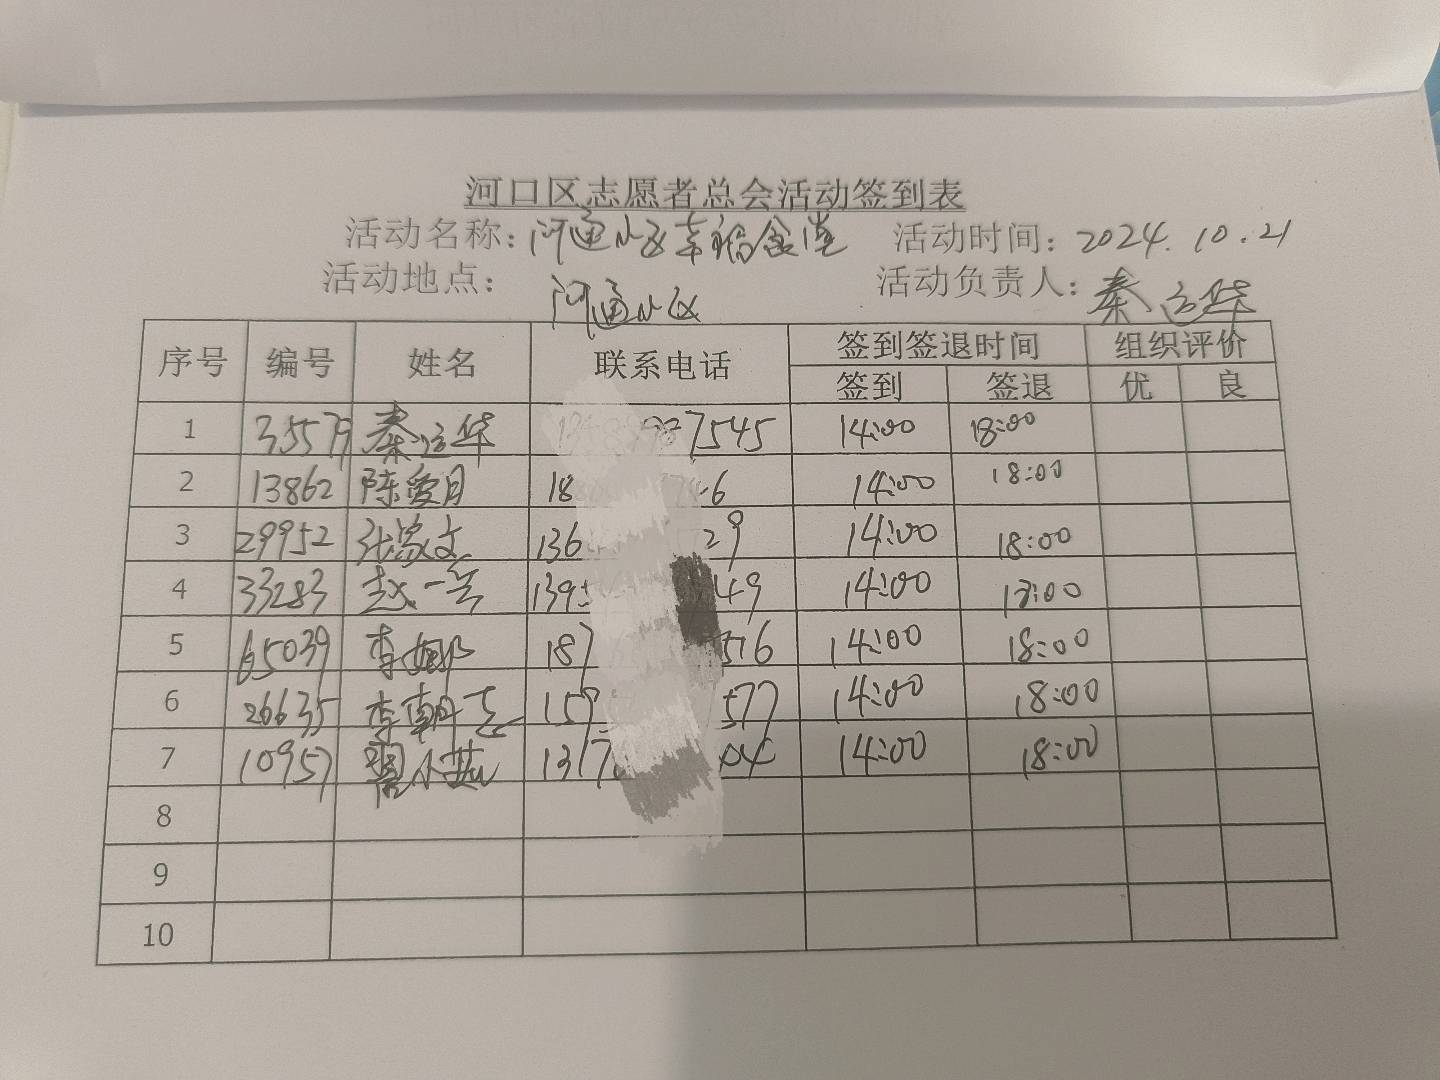 河口区志愿者总会活动签到表
活动名称：河通小区幸福食堂 活动时间：2024.10.21
活动地点：河通小区 活动负责人：秦运华
序号 编号 姓名 联系电话 签到签退时间 组织评价
签到 签退 优 良
1 35579 秦运华 7545 14:00 18:00
2 13862 陈爱月 18 6 14:00 18:00
3 29952 张 文 136 29 14:00 18:00
4 33283 赵一 139 49 14:00 18:00
5 65039 李娜 187 516 14:00 18:00
6 26635 李朝 157 577 14:00 18:00
7 10957 周小燕 1317 04 14:00 18:00
8
9
10